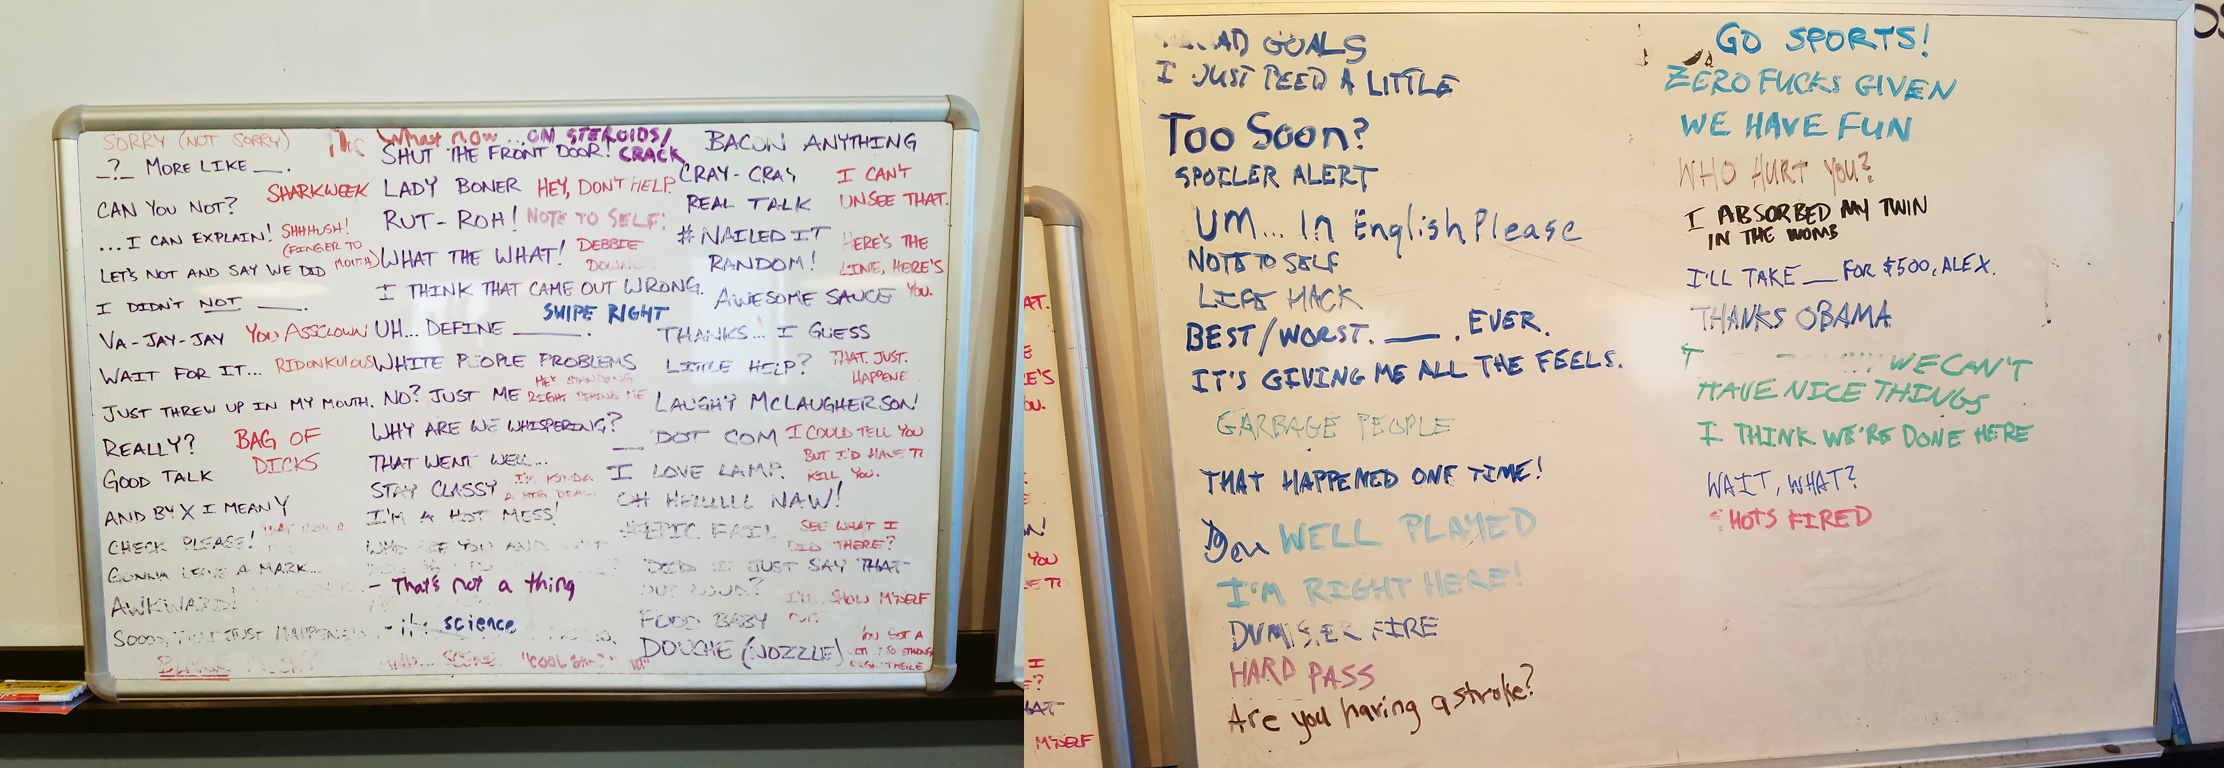 SORRY (NOT SORRY)
_?_ MORE LIKE ___.
SHARKWEEK
CAN YOU NOT?
...I CAN EXPLAIN!
SHHHUSH!
(FINGER TO
MOUTH)
LET'S NOT AND SAY WE DID
I DIDN'T NOT ___.
VA-JAY-JAY
YOU ASSCLOWN
WAIT FOR IT...
RIDONKULOUS
JUST THREW UP IN MY MOUTH.
REALLY?
BAG OF
DICKS
GOOD TALK
AND BY X I MEAN Y
CHECK PLEASE!
GONNA LEAVE A MARK...
AWKWARD!
SOOOO, THAT JUST HAPPENED
The
What now
...ON STEROIDS/
CRACK
SHUT THE FRONT DOOR!
LADY BONER
HEY, DON'T HELP.
RUT-ROH!
NOTE TO SELF:
WHAT THE WHAT!
DEBBIE
DOWNER
I THINK THAT CAME OUT WRONG.
SWIPE RIGHT
UH... DEFINE ______.
WHITE PEOPLE PROBLEMS
HE'S STANDING
RIGHT BEHIND ME
NO? JUST ME
WHY ARE WE WHISPERING?
THAT WENT WELL...
I'M KINDA
A BIG DEAL
STAY CLASSY
I'M A HOT MESS!
WHO ARE YOU AND
- That's not a thing
- science
SCENE
"COOL
BACON ANYTHING
CRAY-CRAY
I CAN'T
UNSEE THAT.
REAL TALK
#NAILED IT
HERE'S THE
LINE, HERE'S
YOU.
RANDOM!
AWESOME SAUCE
THANKS... I GUESS
LITTLE HELP?
THAT. JUST.
HAPPENE
LAUGHY MCLAUGHERSON!
__ DOT COM
I COULD TELL YOU
BUT I'D HAVE TO
KILL YOU.
I LOVE LAMP.
OH HELLLLLL NAW!
#EPIC FAIL
SEE WHAT I
DID THERE?
DID I JUST SAY THAT
OUT LOUD?
I'LL SHOW MYSELF
OUT.
FOOD BABY
DOUCHE (NOZZLE)
YOU GOT A
AT.
E'S
OU.
N!
YOU
I
?
HAT
MYSELF
AD GOALS
I JUST PEED A LITTLE
Too Soon?
SPOILER ALERT
UM... In English Please
NOTE TO SELF
LIFE HACK
BEST/WORST. ___. EVER.
IT'S GIVING ME ALL THE FEELS.
GARBAGE PEOPLE
THAT HAPPENED ONE TIME!
WELL PLAYED
I'M RIGHT HERE!
DUMPSTER FIRE
HARD PASS
Are you having a stroke?
GO SPORTS!
ZERO FUCKS GIVEN
WE HAVE FUN
WHO HURT YOU?
I ABSORBED MY TWIN
IN THE WOMB
I'LL TAKE ___ FOR $500, ALEX.
THANKS OBAMA
WE CAN'T
HAVE NICE THINGS
I THINK WE'RE DONE HERE
WAIT, WHAT?
SHOTS FIRED